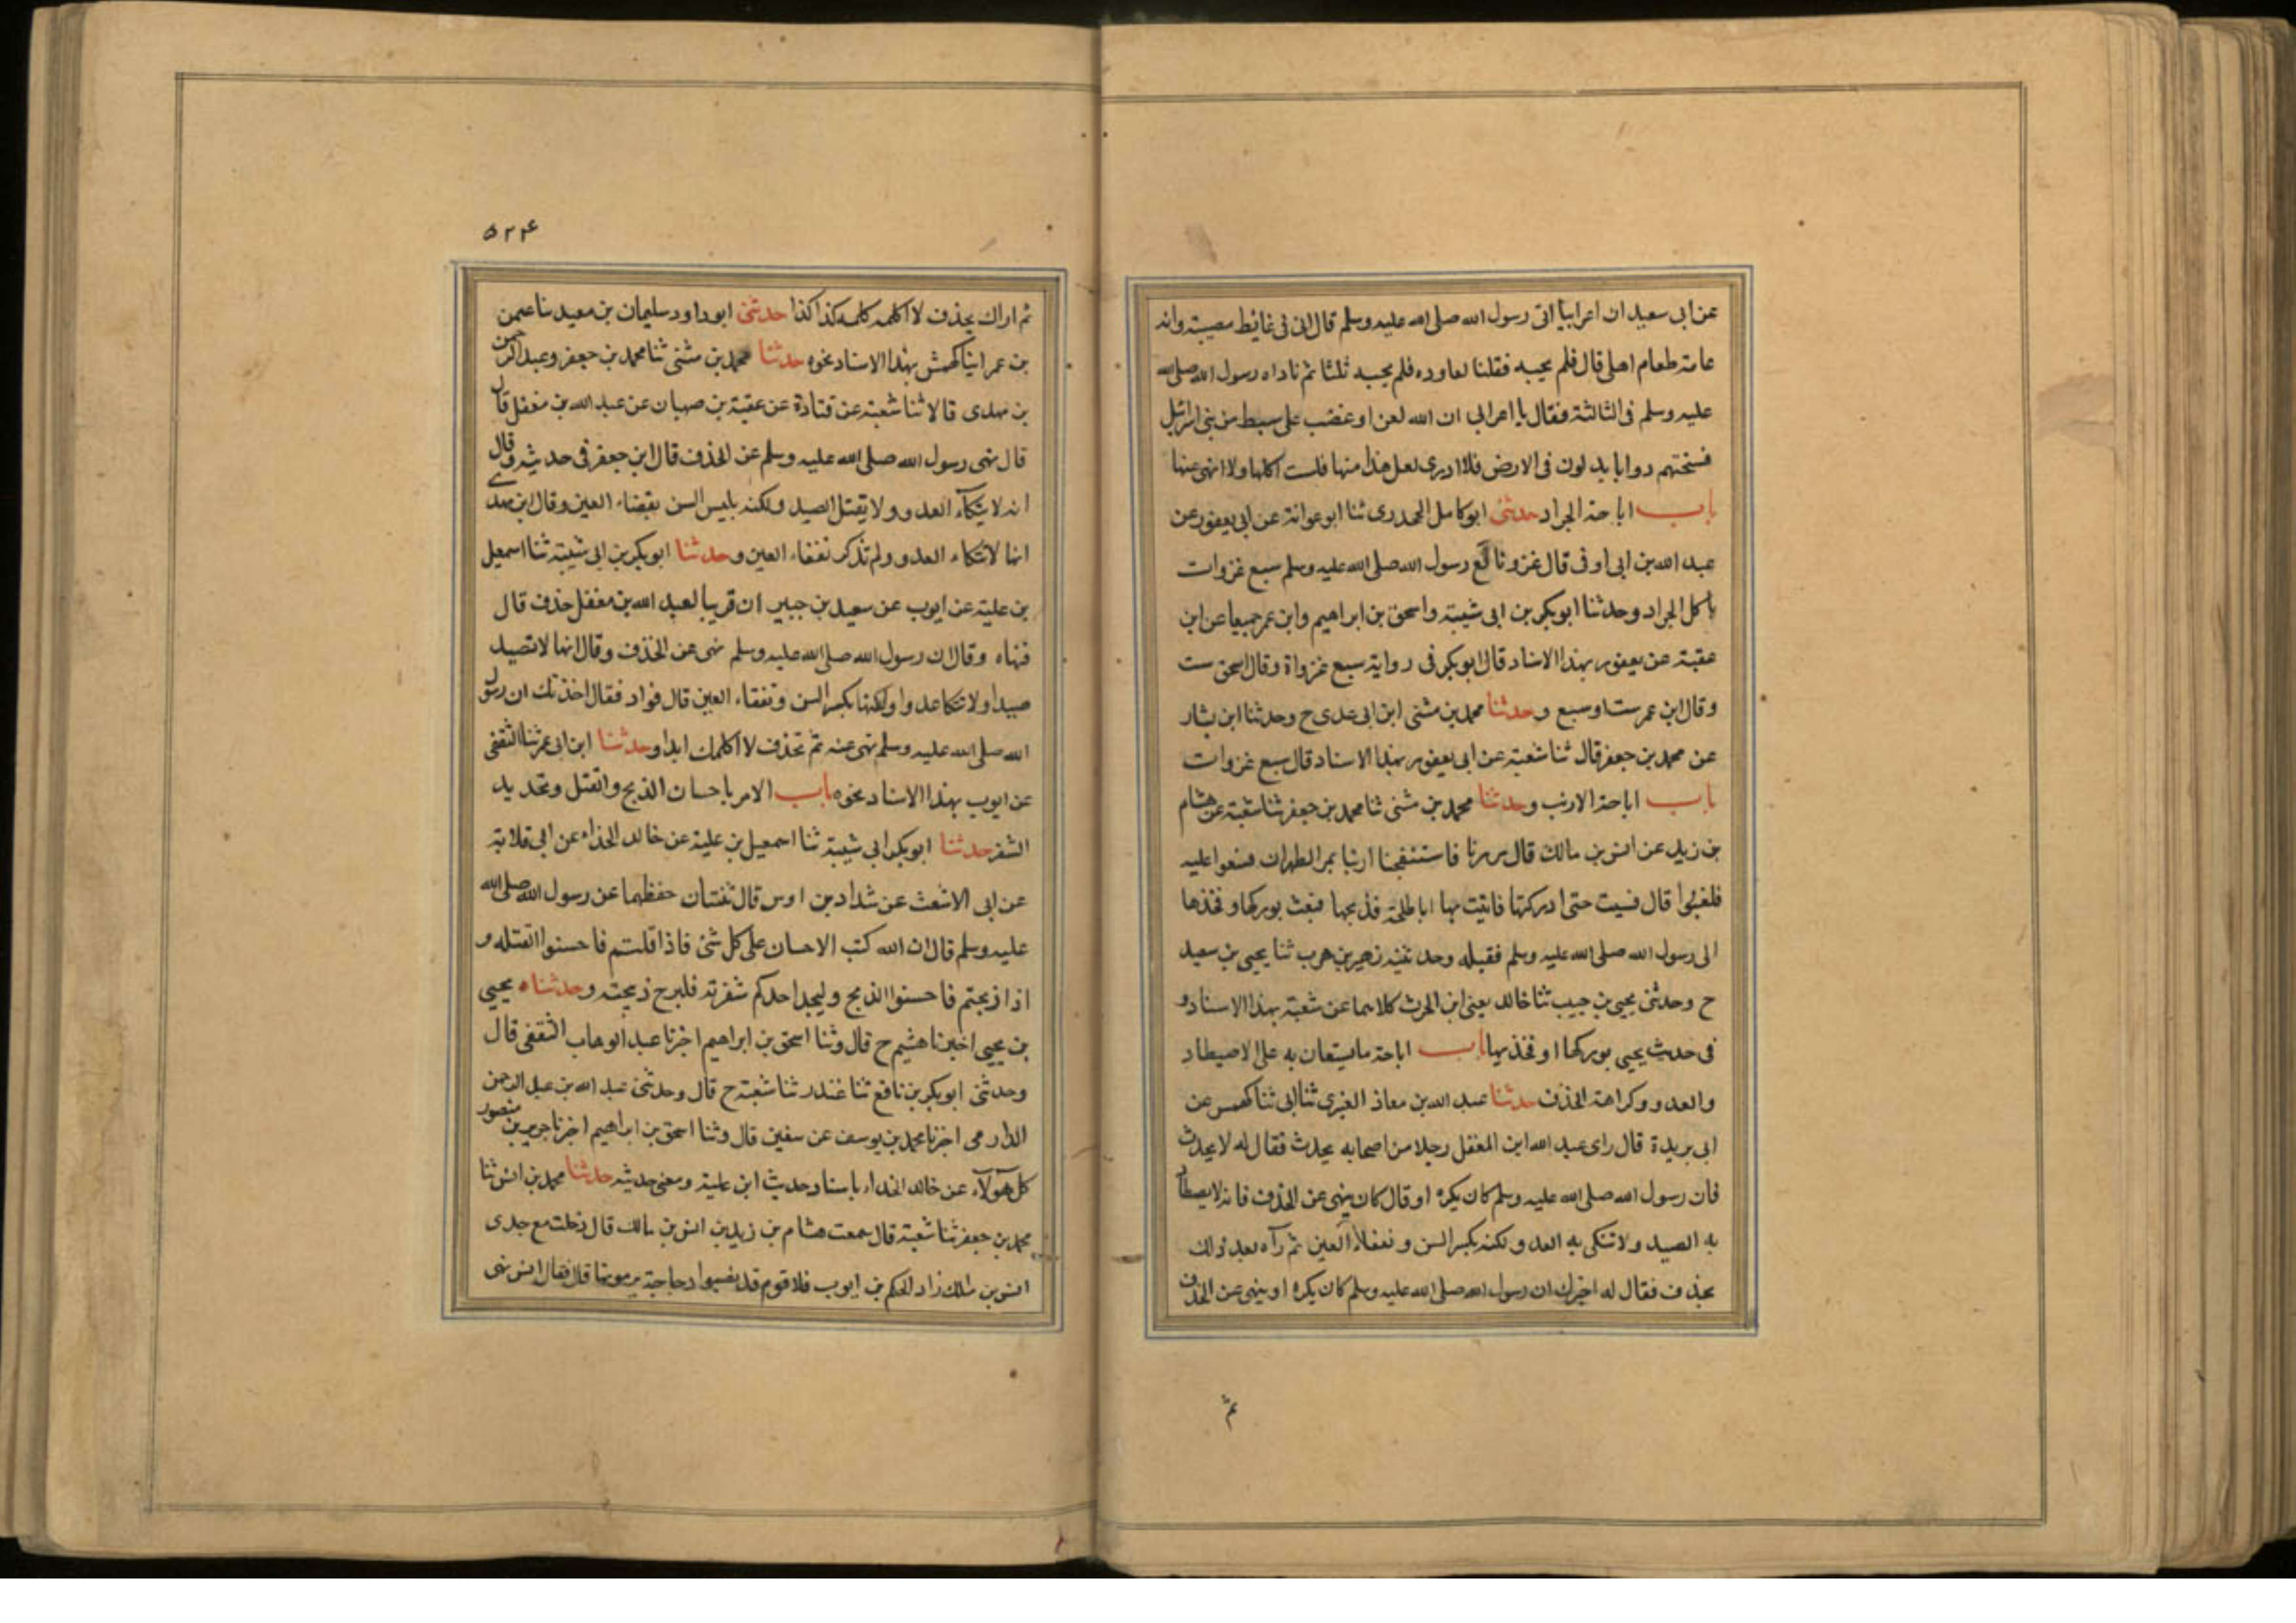 عن ابى سعيد ان اعرابيا اتى رسول الله صلى الله عليه وسلم قال انى فى غايط مضبته وانه
عامة طعام اهلى قال فلم يجبه فقلنا لعاوده فلم يجبه ثلثا ثم ناداه رسول الله صلى الله
عليه وسلم فى الثالثة فقال يا اعرابى ان الله لعن او غضب على سبط من بنى اسرائيل
فمسختهم دوابا يدلون فى الارض فلا ادرى لعل هذا منها فلست اكلها ولا انهى عنها
باب اباحة الجراد حدثنى ابو كامل الجحدرى ثنا ابو عوانة عن ابى يعفور عن
عبد الله بن ابى اوفى قال غزونا مع رسول الله صلى الله عليه وسلم سبع غزوات
ناكل الجراد وحدثنا ابو بكر بن ابى شيبة واسحق بن ابراهيم وابن عمر جميعا عن ابن
عقبة عن يعفور بهذا الاسناد قال ابو بكر فى رواية سبع غزواة وقال اسحق ست
وقال ابن عمر ست او سبع وحدثنا محمد بن مثنى ابن ابى عدى ح وحدثنا ابن بشار
عن محمد بن جعفر قال ثنا شعبة عن ابى يعفور بهذا الاسناد قال سبع غزوات
باب اباحة الارنب وحدثنا محمد بن مثنى ثنا محمد بن جعفر ثنا شعبة عن هشام
بن زيد عن انس بن مالك قال مررنا فاستنفجنا ارنبا بمر الظهران فسعوا عليه
فلغبوا قال فسيت حتى ادركتها فاتيت بها ابا طلحة فذبحها فبعث بوركها وفخذها
الى رسول الله صلى الله عليه وسلم فقبله وحدثنيه زهير بن حرب ثنا يحيى بن سعيد
ح وحدثنى يحيى بن حبيب ثنا خالد يعنى ابن الحرث كلاهما عن شعبة بهذا الاسناد و
فى حديث يحيى بوركها او فخذيها باب اباحة ما يستعان به على الاصيطاد
والعدو وكراهة الخذف حدثنا عبد الله بن معاذ العنبرى ثنا ابى ثنا كهمس عن
ابى بريدة قال راى عبد الله ابن المغفل رجلا من اصحابه يحدث فقال له لا يحدث
فان رسول الله صلى الله عليه وسلم كان يكره او قال كان ينهى عن الخذف فانه لا يصطاد
به الصيد ولا تنكى به العدو ولكنه يكسر السن ونفقاء العين ثم رآه بعد ذلك
يخذف فقال له اخبرك ان رسول الله صلى الله عليه وسلم كان يكره او ينهى عن الخذف
ثم
۵۲۴
ثم اراك يخذف لا اكلمه كلمه كذا كذا حدثنى ابو داود سليمان بن معيد ثنا عثمن
بن عمر ابنا كهمش بهذا الاسناد نحوه حدثنا محمد بن مثنى ثنا محمد بن جعفر وعبد الرحمن
بن مهدى قالا ثنا شعبة عن قتادة عن عقبة بن صهبان عن عبد الله بن مغفل قال
قال نهى رسول الله صلى الله عليه وسلم عن الخذف قال ابن جعفر فى حديثه وقال
انه لا ينكاء العدو ولا يقتل الصيد ولكنه يليس السن يفقاء العين وقال ابن مهدے
انها لا تنكاء العدو ولم تذكر نفقاء العين وحدثنا ابو بكر بن ابى شيبة ثنا اسمعيل
بن علية عن ايوب عن سعيد بن جبير ان قريبا لعبد الله بن مغفل خذف قال
فنهاه وقال ان رسول الله صلى الله عليه وسلم نهى عن الخذف وقال انها لا تصيد
صيدا ولا تنكا عدوا ولكنها بكسر السن وتفقاء العين قال فواد فقال اخذتك ان رسول
الله صلى الله عليه وسلم نهى عنه ثم تخذف لا اكلمك ابدا وحدثنا ابن ابى عمر ثنا الثقفى
عن ايوب بهذا الاسناد نحوه باب الامر باحسان الذبح والقتل وتحديد
الشفر حدثنا ابو بكر ابى شيبة ثنا اسمعيل بن علية عن خالد الحذاء عن ابى قلابة
عن ابى الاشعث عن شداد بن اوس قال ثنتان حفظهما عن رسول الله صلى الله
عليه وسلم قال ان الله كتب الاحسان على كل شئ فاذا قلتم فاحسنوا القتله و
اذا ذبحتم فاحسنوا الذبح وليحد احدكم شفرته فليرح ذبحته وحدثناه يحيى
بن يحيى اخبرنا هشيم ح قال وثنا اسحق بن ابراهيم اخرنا عبد الوهاب الثقفى قال
وحدثنى ابو بكر بن نافع ثنا غندر ثنا شعبة ح قال وحدثنى عبد الله بن عبد الرحمن
الدارمى اخرنا محمد بن يوسف عن سفين قال وثنا اسحق بن ابراهيم اخرنا جرير بن منصور
كل هؤلاء عن خالد الحذاء باسناد حديث ابن علية ومعنى حديثه حدثنا محمد بن انس ثنا
محمد بن جعفر ثنا شعبة قال سمعت هشام بن زيد بن انس بن مالك قال دخلت مع جدى
انس بن مالك زاد الحكم بن ايوب فلا قوم قد نصبوا دجاجة يرمونها قال فقال انس نهى